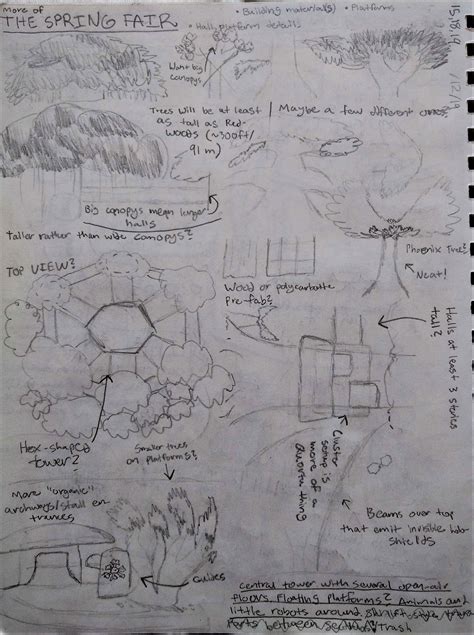 more of
THE SPRING FAIR
• Building material(s)
• Platforms
• Hall, platform details
15.18.19
/12/19
Want big
canopys
Trees will be at least
as tall as Red-
woods (~300ft/
91 m)
Maybe a few different ones
Big canopys mean larger
halls
Taller rather than wide canopys?
Phoenix Tree?
Neat!
TOP VIEW?
Wood or polycarbotte
pre-fab?
Halls at least 3 stories
tall?
Hex-shaped
tower?
Smaller trees
on platforms?
Cluster
setup is
more of a
thing
More "organic"
archways/stall en-
trances
Beams over top
that emit invisible holo-
shields
central tower with several open-air
floors. Floating platforms? Animals and
little robots around
between
Trash